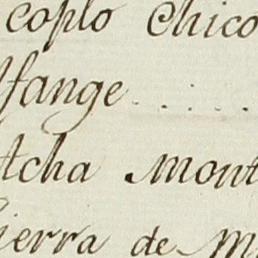 coplo Chico
lfange . . . .
tcha mont
ierra de M